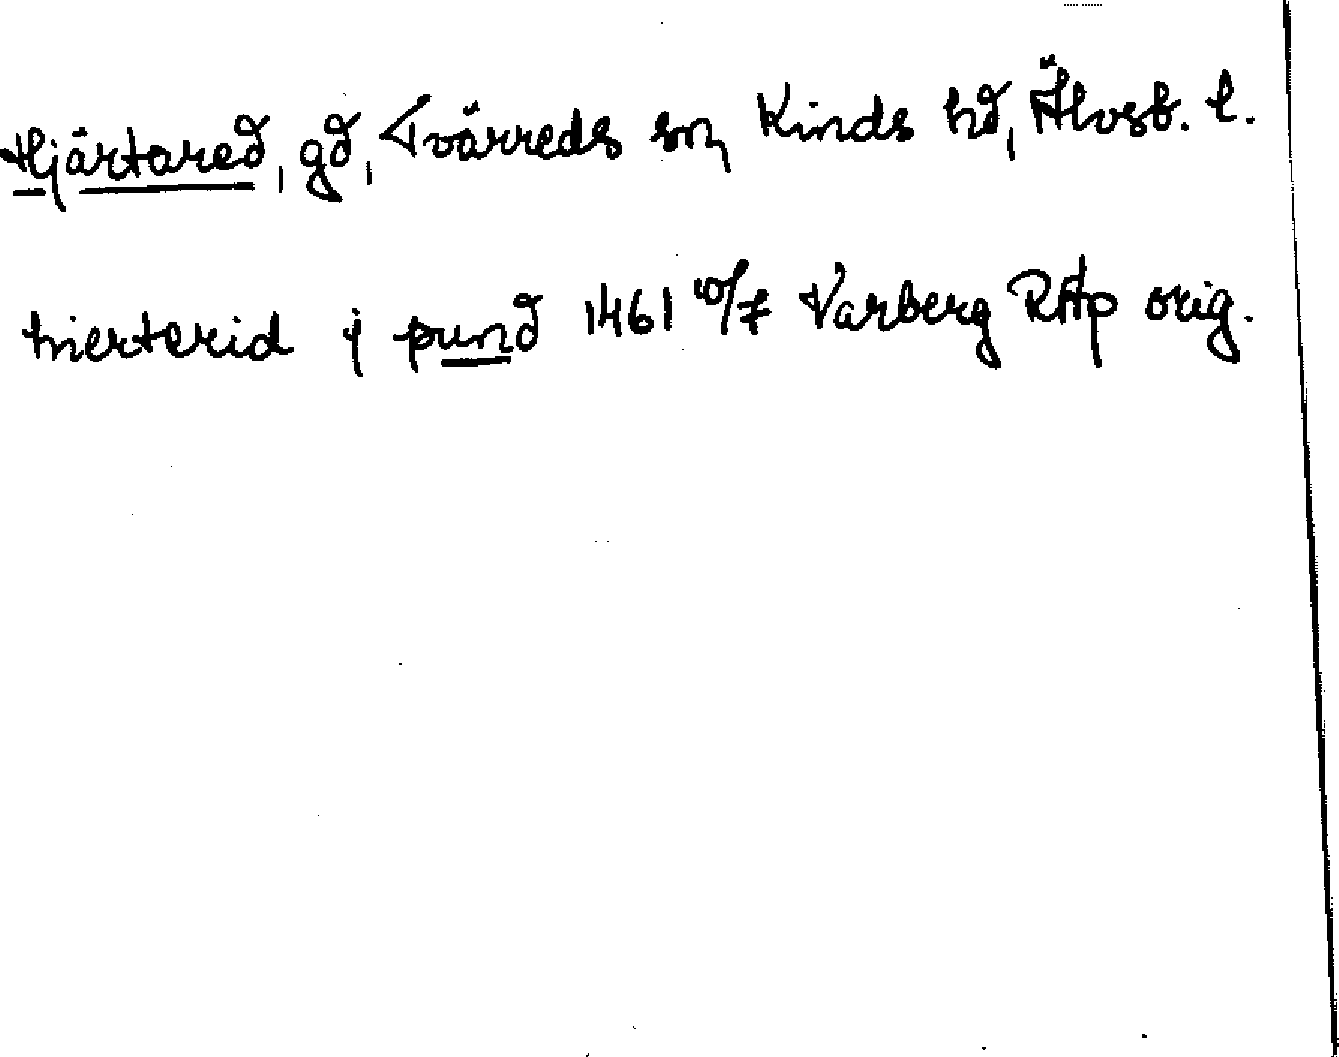 Hjärtared, gd, Tvärreds sn, Kinds hd, Älvsb. l.
hierterid j pund 1461 10/7 Varberg RAp orig.